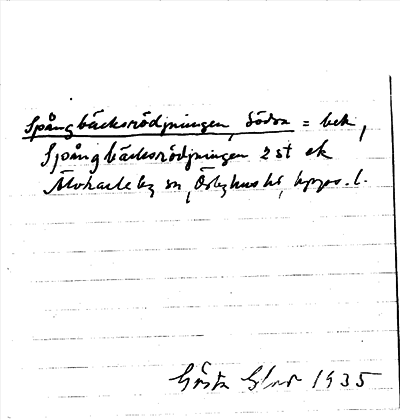 Spångbäcksrödjningen, Södra = bek,
Spångbäcksrödjningen 2 st ek
Älvkarleby sn, Örbyhus hd, Upps. l.
Gösta 1935